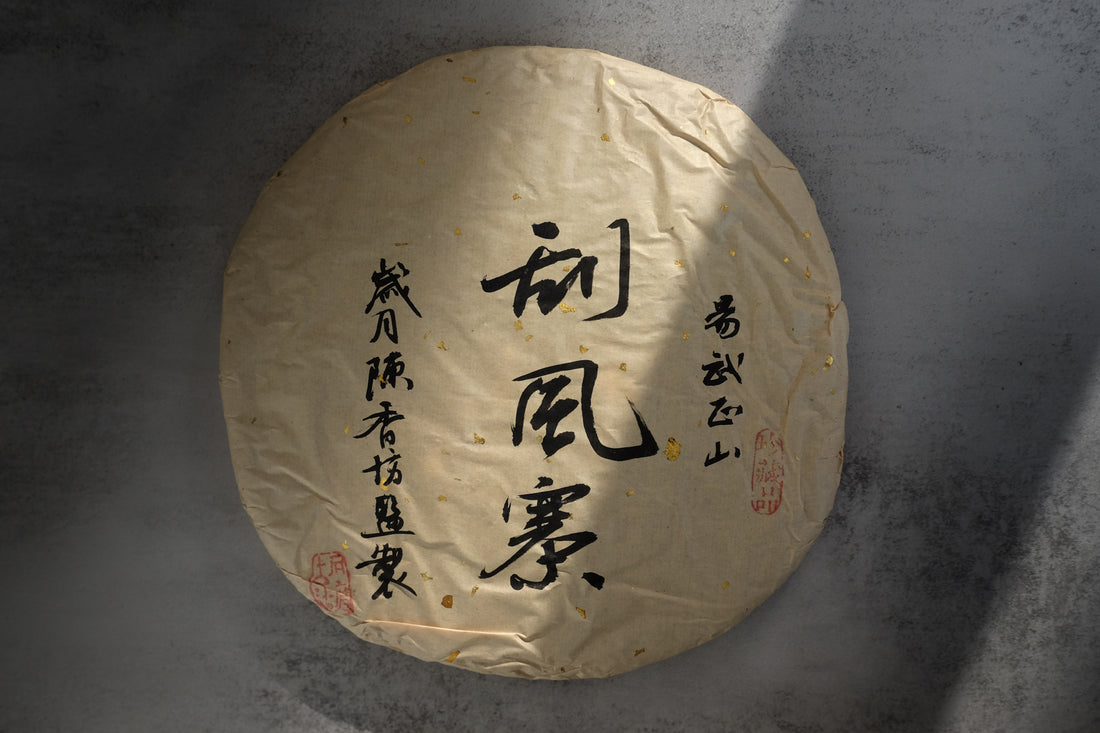 易武正山
珍藏品
刮風寨
歲月陳香坊監製